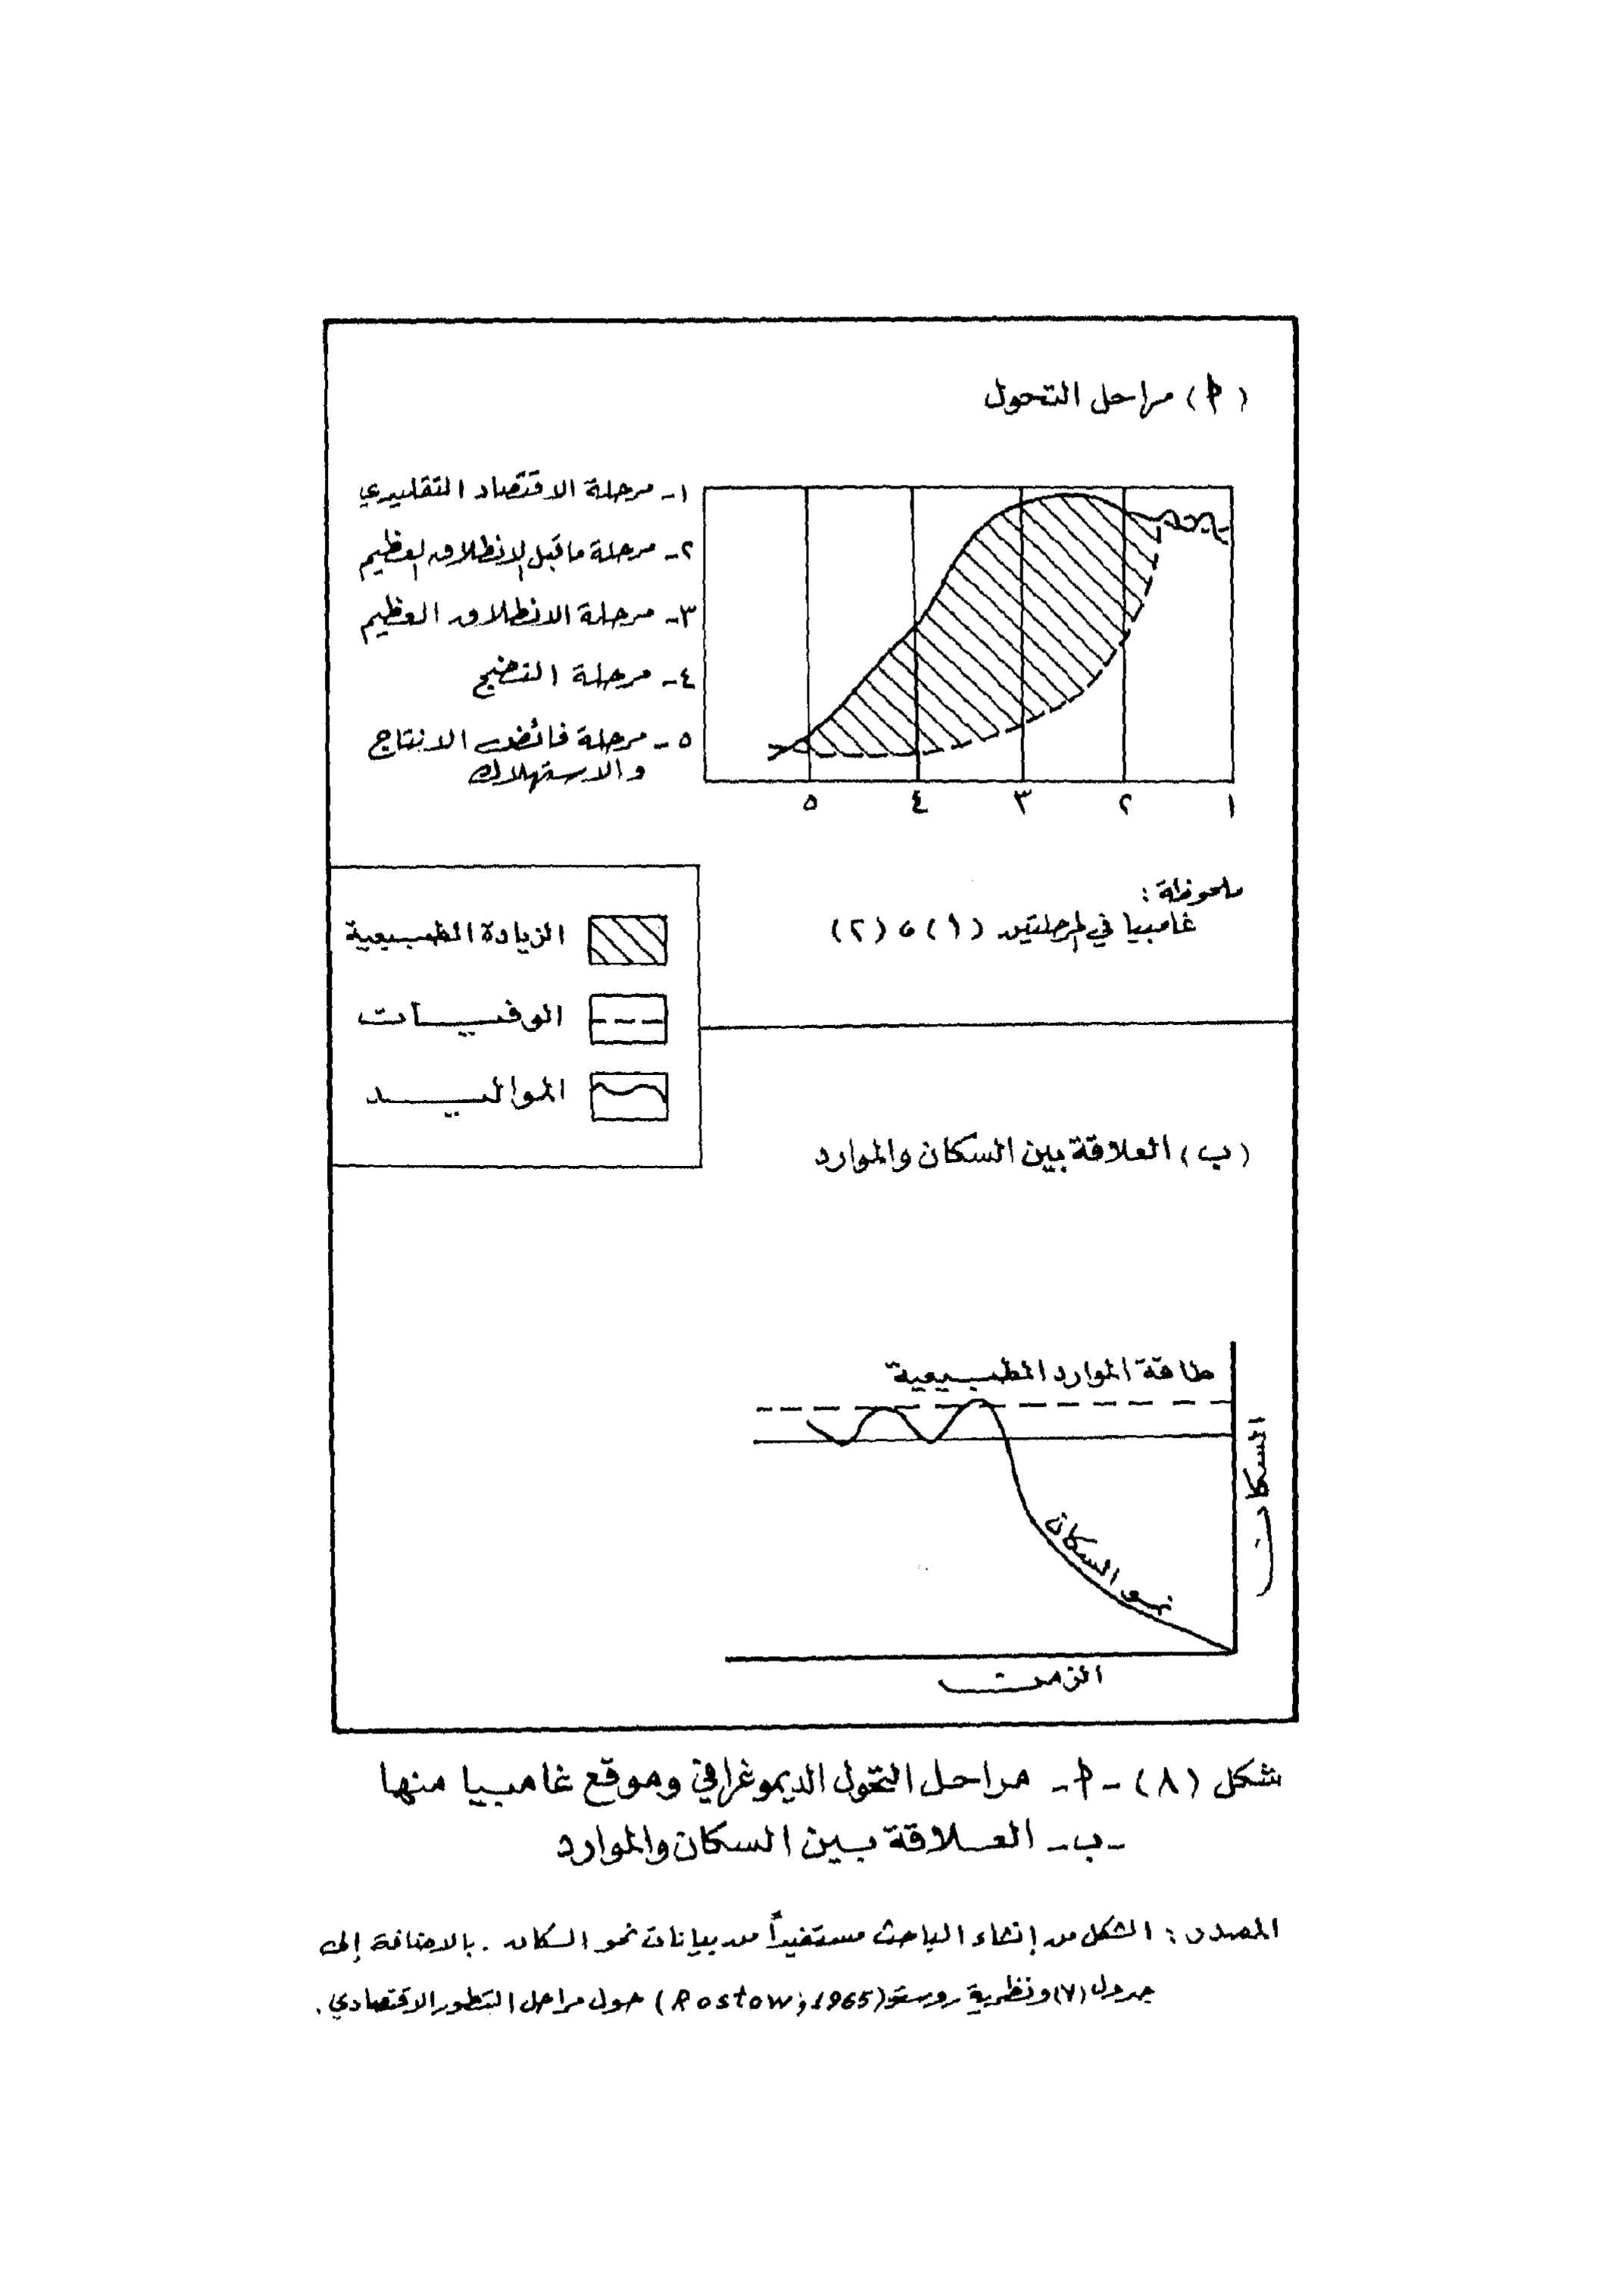 (أ) مراحل التحول
١- مرحلة الاقتصاد التقليدي
٢- مرحلة ما قبل الانطلاق العظيم
٣- مرحلة الانطلاق العظيم
٤- مرحلة النضج
٥- مرحلة فائض الانتاج
والاستهلاك
١ ٢ ٣ ٤ ٥
ملحوظة:
غامبيا في المرحلتين (١) ، (٢)
الزيادة الطبيعية
الوفيات
المواليد
(ب) العلاقة بين السكان والموارد
طاقة الموارد الطبيعية
السكان
نمو السكان
الزمن
شكل (٨) -أ- مراحل التحول الديموغرافي وموقع غامبيا منها
-ب- العلاقة بين السكان والموارد
المصدر: الشكل من إنشاء الباحث مستفيداً من بيانات نمو السكان. بالاضافة إلى
جدول (٧) ونظرية روستو (Rostow; 1965) حول مراحل التطور الاقتصادي.